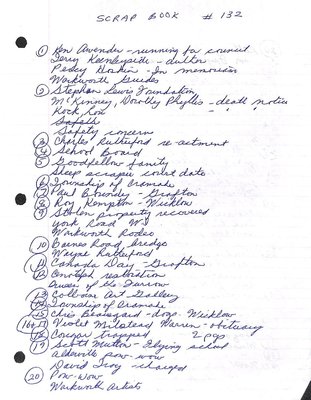 SCRAP BOOK # 132
1 Ken Awender - running for council
Terry Keeneleyside - author
Percy Hoskin - In memoriam
Warkworth Guides
2 Stephen Lewis Foundation
McKinney, Dorothy Phyllis - death notice
Rock Row " "
Safety concerns
3 Charles Rutherford re-actment
4 School Board
5 Goodfellow family
Sheep scraper court date
6 Township of Cramahe
7 Paul Blowdey - Grafton
8 Roy Kempton - Wicklow
9 Stolen property recovered
York Road W.I.
Warkworth Rodeo
10 Barnes Road bridge
Wayne Rutherford
11 Canada Day - Grafton
12 Cenotaph restoration
Queen of the Furrow
13 Colborne Art Gallery
14 Township of Cramahe
15 Chris Beausgard - dogs. Wicklow
16+17 Violet Milstead Warren - obituary
18 Cougar trapped 2 pgs
19 Scott Mutton - flying school
Alderville pow-wow
David Troy - charged
20 Pow-wow
Warkworth Artists